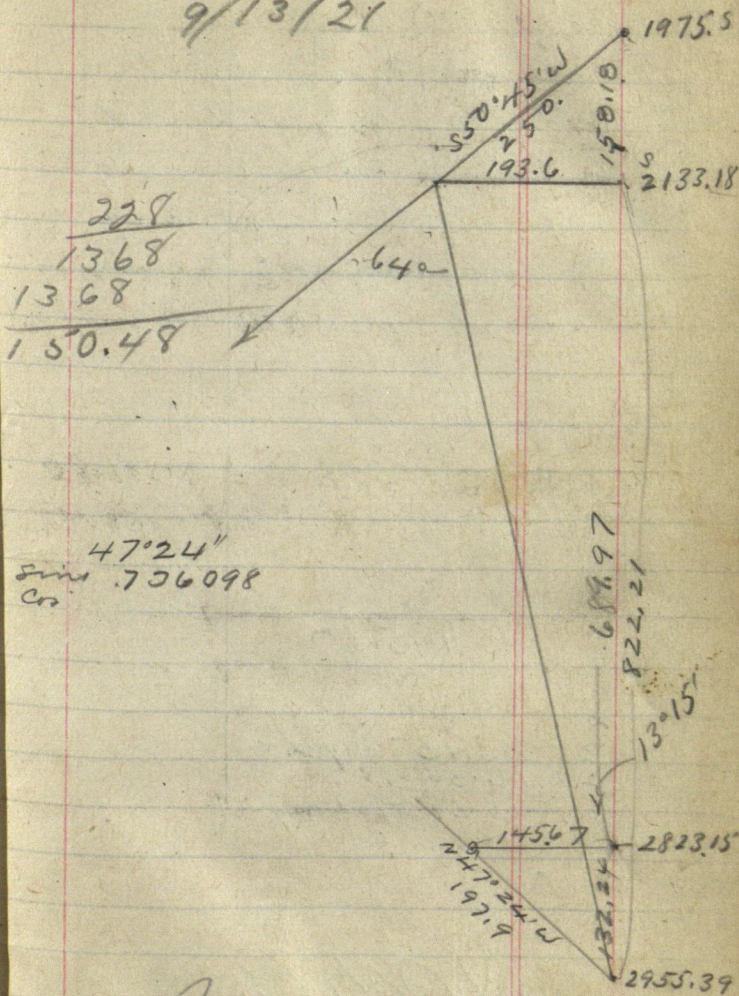 9/13/21
1975.S
S50°45'W
250.
158.18
193.6
S
2133.18
228
1368
1368
150.48
64°
47°24"
Sine .736098
Cos
689.97
822.21
13°15'
145.67
2823.15
N47°24'W
197.9
132.24
2955.39